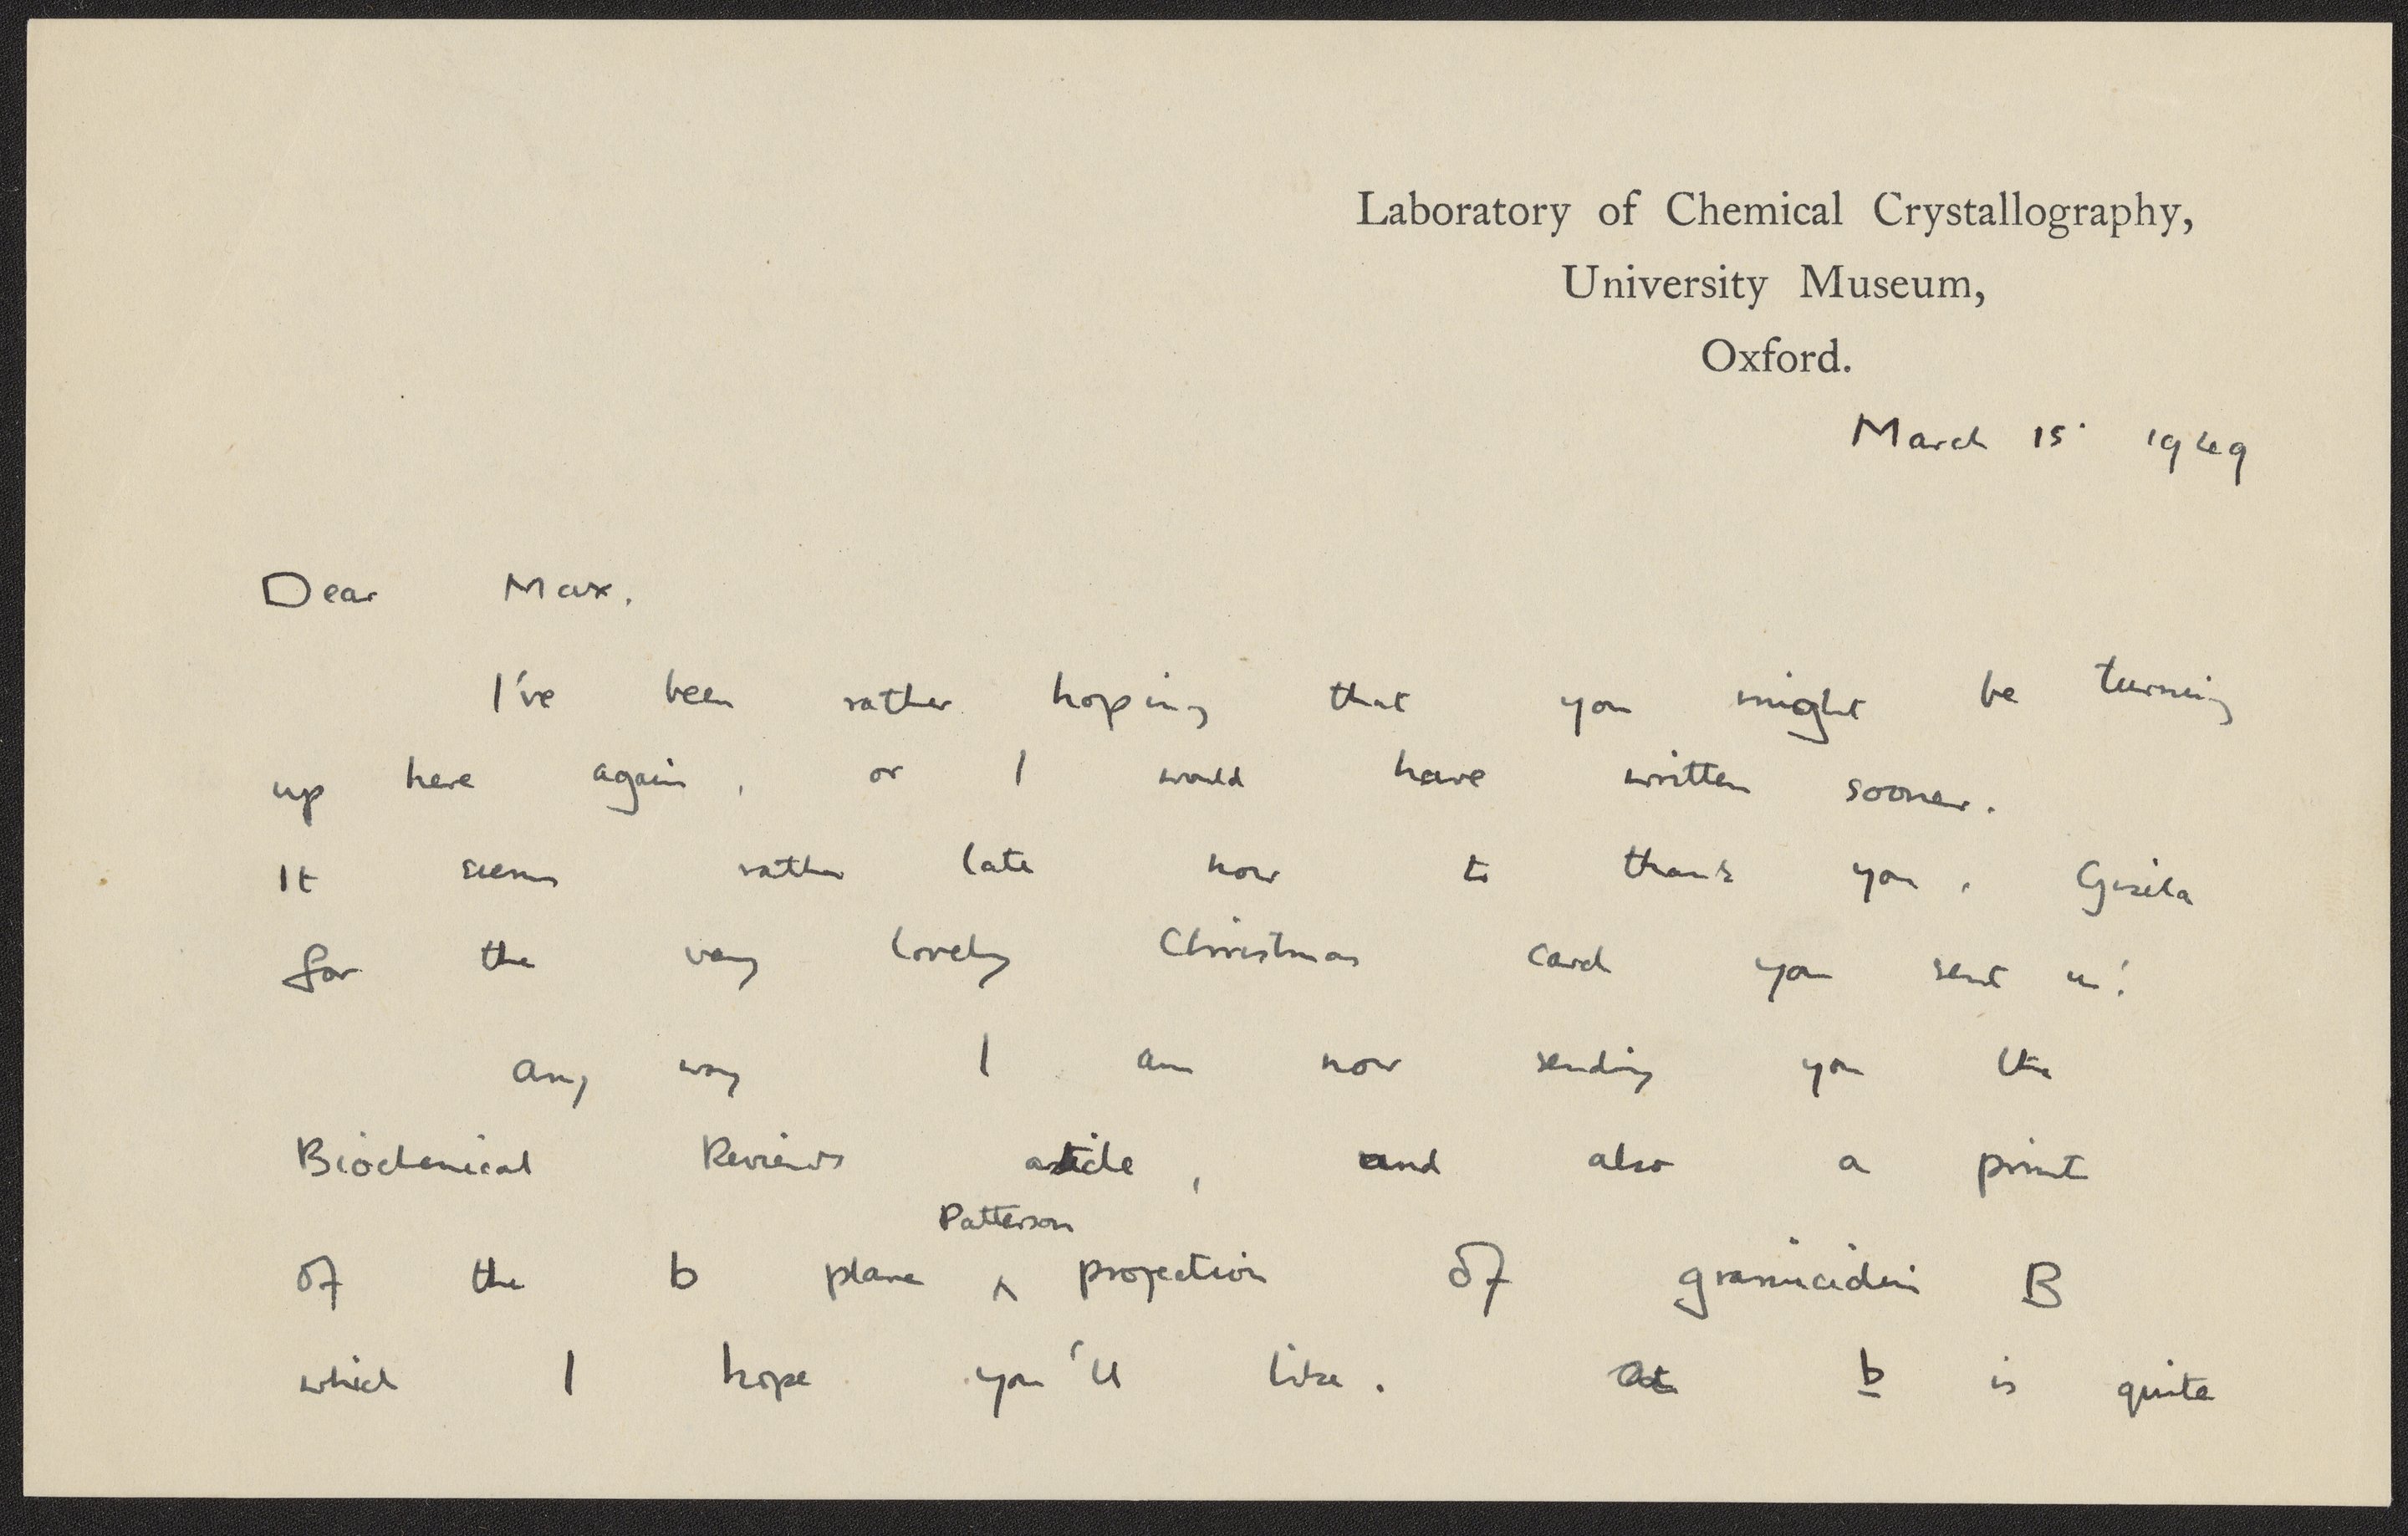 Laboratory of Chemical Crystallography,
University Museum,
Oxford.
March 15. 1949
Dear Max.
I've been rather hoping that you might be turning
up here again, or I would have written sooner.
It seems rather late now to thank you, Gisela
for the very lovely Christmas card you sent us!
Any way I am now sending you the
Biochemical Reviews article, and also a print
Patterson
of the b plane ^ projection of gramicidin B
which I hope you'll like. b is quite